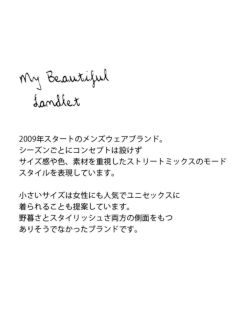 My Beautiful
Landlet
2009年スタートのメンズウェアブランド。
シーズンごとにコンセプトは設けず
サイズ感や色、素材を重視したストリートミックスのモード
スタイルを表現しています。
小さいサイズは女性にも人気でユニセックスに
着られることも提案しています。
野暮さとスタイリッシュさ両方の側面をもつ
ありそうでなかったブランドです。